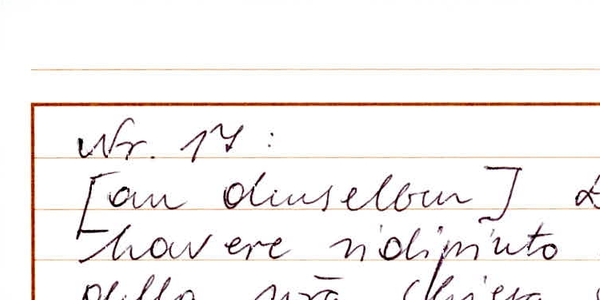 Nr. 17 :
[an denselben]
havere ridipinto
della